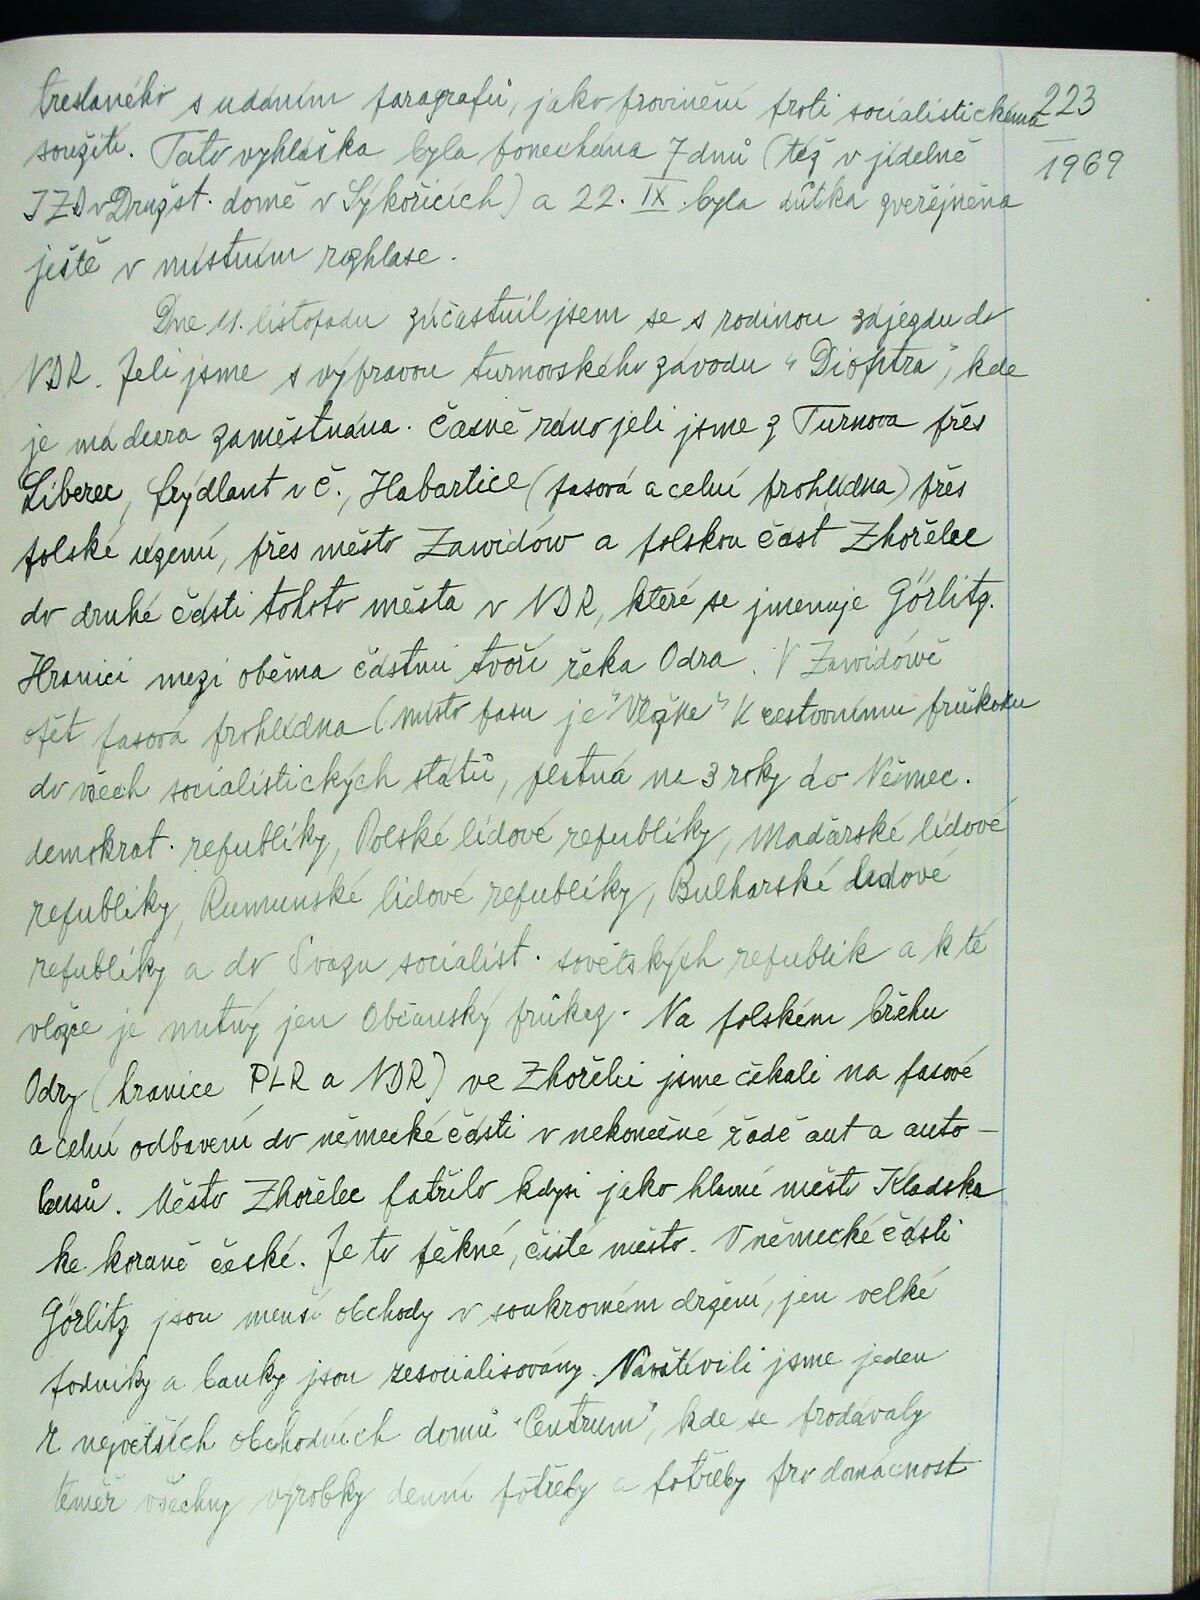 trestaného s udáním paragrafů, jako provinění proti socialistickému
soužití. Tato vyhláška byla ponechána 7 dnů (též v jídelně
JZD v Družst. domě v Sýkořicích) a 22. IX. byla důtka zveřejněna
ještě v místním rozhlase.
Dne 11. listopadu zúčastnil jsem se s rodinou zájezdu do
NDR. Jeli jsme s výpravou turnovského závodu "Dioptra", kde
je má dcera zaměstnána. Časně ráno jeli jsme z Turnova přes
Liberec, Frýdlant v Č., Habartice (pasová a celní prohlídka) přes
polské území, přes město Zawidów a polskou část Zhořelec
do druhé části tohoto města v NDR, které se jmenuje Görlitz.
Hranici mezi oběma částmi tvoří řeka Odra. V Zawidówě
opět pasová prohlídka (místo pasu je "Vložka" k cestovnímu průkazu
do všech socialistických států, platná na 3 roky do Němec.
demokrat. republiky, Polské lidové republiky, Maďarské lidové
republiky, Rumunské lidové republiky, Bulharské lidové
republiky a do Svazu socialist. sovětských republik a k té
vložce je nutný jen Občanský průkaz. Na polském břehu
Odry (hranice PLR a NDR) ve Zhořelci jsme čekali na pasové
a celní odbavení do německé části v nekonečné řadě aut a auto-
busů. Město Zhořelec patřilo kdysi jako hlavní město Kladska
ke koruně české. Je to pěkné, čisté město. V německé části
Görlitz jsou menší obchody v soukromém držení, jen velké
podniky a banky jsou zesocialisovány. Navštívili jsme jeden
z největších obchodních domů "Centrum", kde se prodávaly
téměř všechny výrobky denní potřeby a potřeby pro domácnost
223
1969